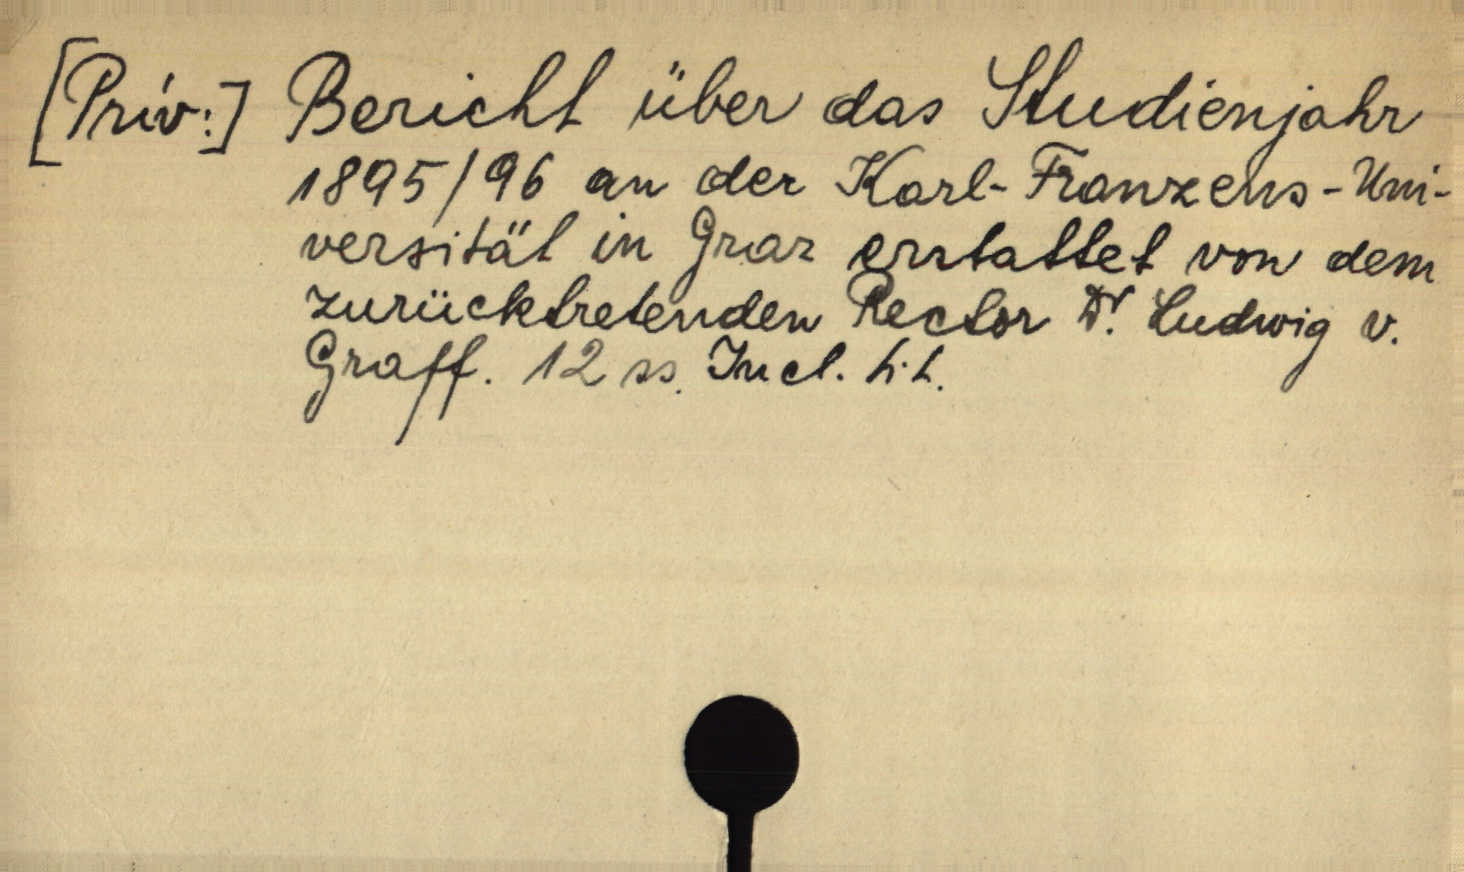 [Priv:] Bericht über das Studienjahr
1895/96 an der Karl-Franzens-Uni-
versität in Graz erstattet von dem
zurücktretenden Rector Dr. Ludwig v.
Graff. 12 ss. Incl. h.t.